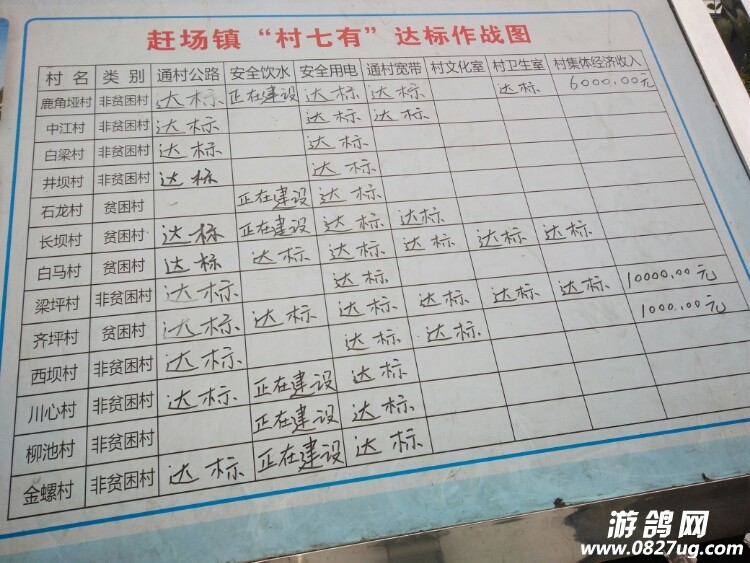 赶场镇“村七有”达标作战图
村名 类别 通村公路 安全饮水 安全用电 通村宽带 村文化室 村卫生室 村集体经济收入
鹿角垭村 非贫困村 达标 正在建设 达标 达标 达标 6000.00元
中江村 非贫困村 达标 达标 达标
白梁村 非贫困村 达标 达标
井坝村 非贫困村 达标 达标
石龙村 贫困村 正在建设 达标
长坝村 贫困村 达标 正在建设 达标 达标
白马村 贫困村 达标 达标 达标 达标 达标 达标
梁坪村 非贫困村 达标 达标
齐坪村 贫困村 达标 达标 达标 达标 达标 达标 10000.00元
西坝村 非贫困村 达标 达标 达标 1000.00元
川心村 非贫困村 达标 正在建设 达标
柳池村 非贫困村 正在建设 达标
金螺村 非贫困村 达标 正在建设 达标
游鸽网
www.0827ug.com